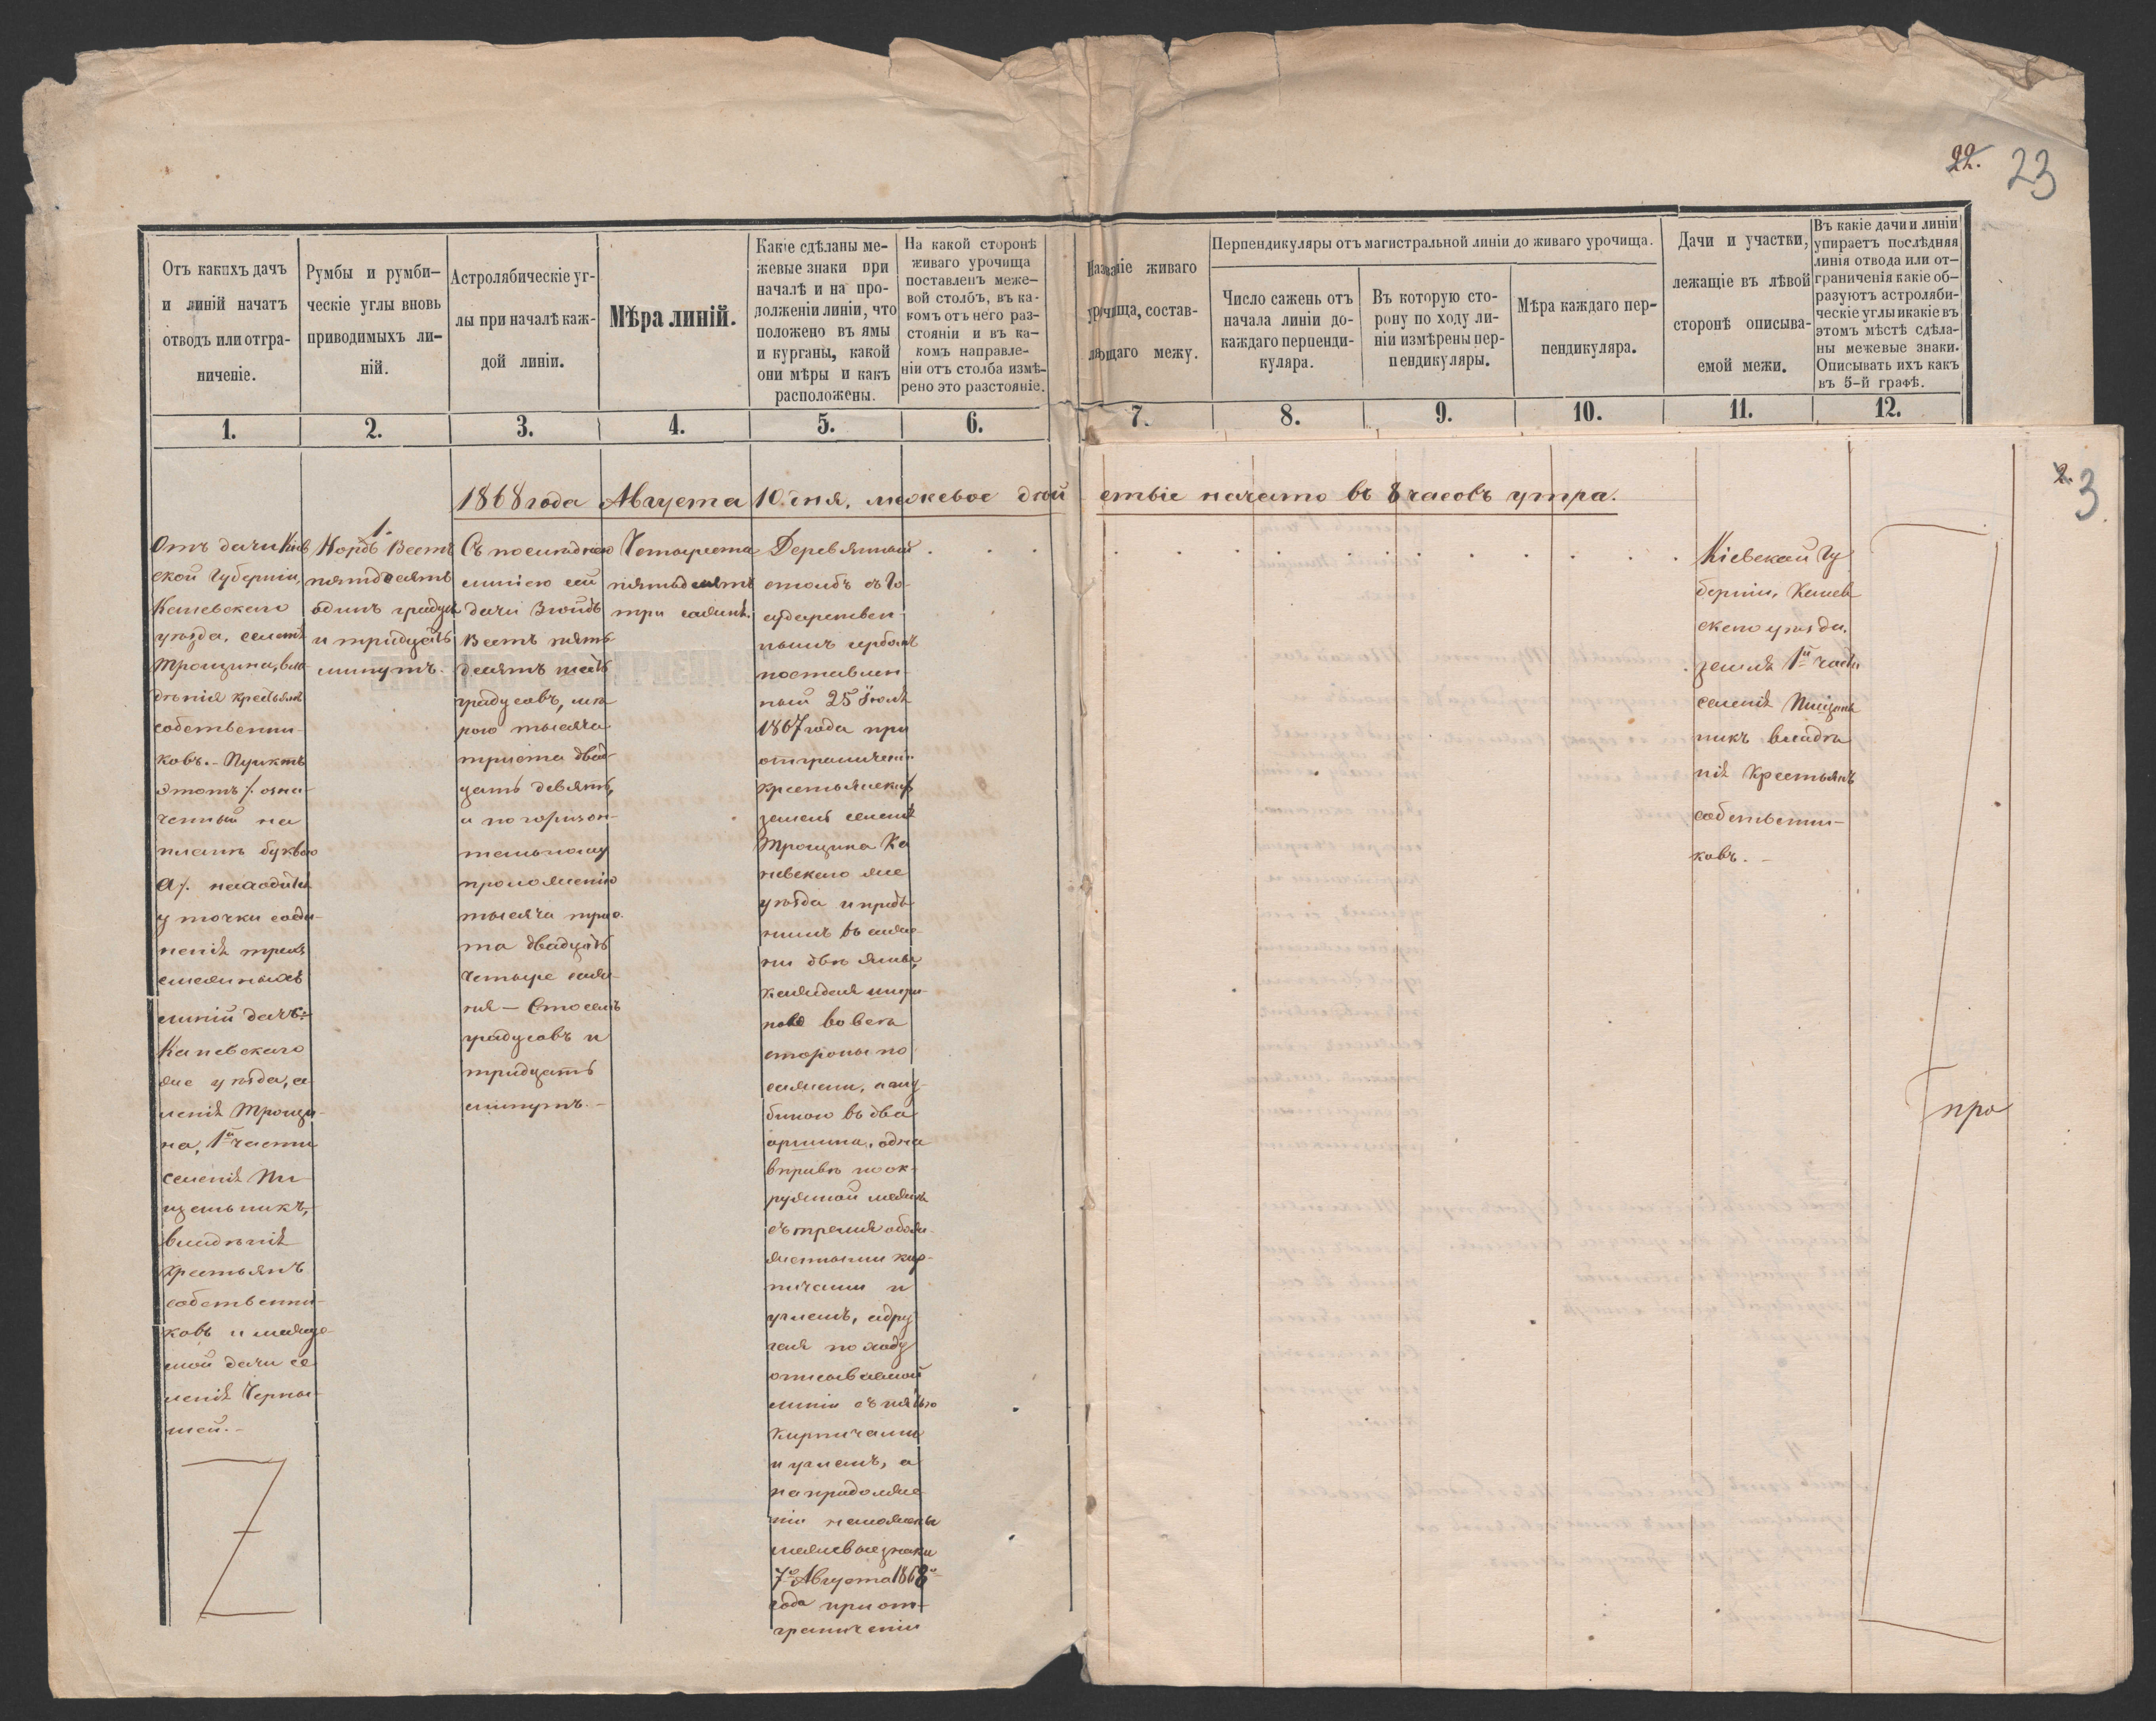 22. 23
Отъ какихъ дачъ
и линій начатъ
отводъ или отгра-
ниченіе.
Румбы и румби-
ческіе углы вновь
приводимыхъ ли-
ній.
Астролябическіе уг-
лы при началѣ каж-
дой линіи.
Мѣра линій.
Какіе сдѣланы ме-
жевые знаки при
началѣ и на про-
долженіи линіи, что
положено въ ямы
и курганы, какой
они мѣры и какъ
расположены.
На какой сторонѣ
живаго урочища
поставленъ меже-
вой столбъ, въ ка-
комъ отъ него раз-
стояніи и въ ка-
комъ направле-
ніи отъ столба измѣ-
рено это разстояніе.
Названіе живаго
урочища, состав-
ляющаго межу.
Перпендикуляры отъ магистральной линіи до живаго урочища.
Число сажень отъ
начала линіи до
каждаго перпенди-
куляра.
Въ которую сто-
рону по ходу ли-
ніи измѣрены пер-
пендикуляры.
Мѣра каждаго пер-
пендикуляра.
Дачи и участки,
лежащіе въ лѣвой
сторонѣ описыва-
емой межи.
Въ какіе дачи и линіи
упираетъ послѣдняя
линія отвода или от-
граниченія какіе об-
разуютъ астроляби-
ческіе углы и какіе въ
этомъ мѣстѣ сдѣла-
ны межевые знаки.
Описывать ихъ какъ
въ 5-й графѣ.
1. 2. 3. 4. 5. 6. 7. 8. 9. 10. 11. 12.
2. 3
1868 года Августа 10 дня, межевое дѣй ствіе начато въ 8 часовъ утра.
Отъ дачи Кіев
ской Губерніи,
Каневскаго
уѣзда, селенія
Трощина, вла-
дѣнія крестьянъ
собственни-
ковъ. - Пунктъ
этотъ /. озна-
ченный на
планѣ буквою
а /. находится
у точки соеди-
ненія трехъ
смежныхъ
линій дачъ:
Каневскаго
же уѣзда, се
ленія Трощи-
на, 1й части
селенія Пи
щальникъ,
владѣнія
крестьянъ
собственни-
ковъ и межуе-
мой дачи се
ленія Черны-
шей. -
1.
Нордъ Вестъ
пятьдесятъ
одинъ градусъ
и тридцать
минутъ.
Съ послѣднею
линіею сей
дачи Зюйдъ
Вестъ пять
десятъ шесть
градусовъ, мѣ
рою тысяча
триста двад
цать девять,
а по горизон-
тальному
проложенію
тысяча трис
та двадцать
четыре саже-
ня - Сто семь
градусовъ и
тридцать
минутъ. -
Четыреста
пятьдесятъ
три сажня.
Деревянный
столбъ съ Го-
сударствен-
нымъ гербомъ
поставлен-
ный 25 Іюля
1867 года при
отграниченіи
крестьянскихъ
земель селенія
Трощина Ка
невскаго же
уѣзда и предъ
нимъ въ саже-
ни двѣ ямы,
каждая шири-
ною во всѣ
стороны по
сажени, а глу-
биною въ два
аршина, одна
вправѣ по ок-
ружной межѣ
съ тремя обож-
женными кир-
пичами и
углемъ, а дру
гая по ходу
описываемой
линіи съ пятью
кирпичами
и углемъ, а
на продолже
ніи
межевые знаки
7го Августа 1868го
года при от-
граниченіи
Кіевской Гу
берніи, Канев
скаго уѣзда,
земля 1й части
селенія Пищаль
никъ владѣ
нія крестьянъ
собственни-
ковъ. -
при